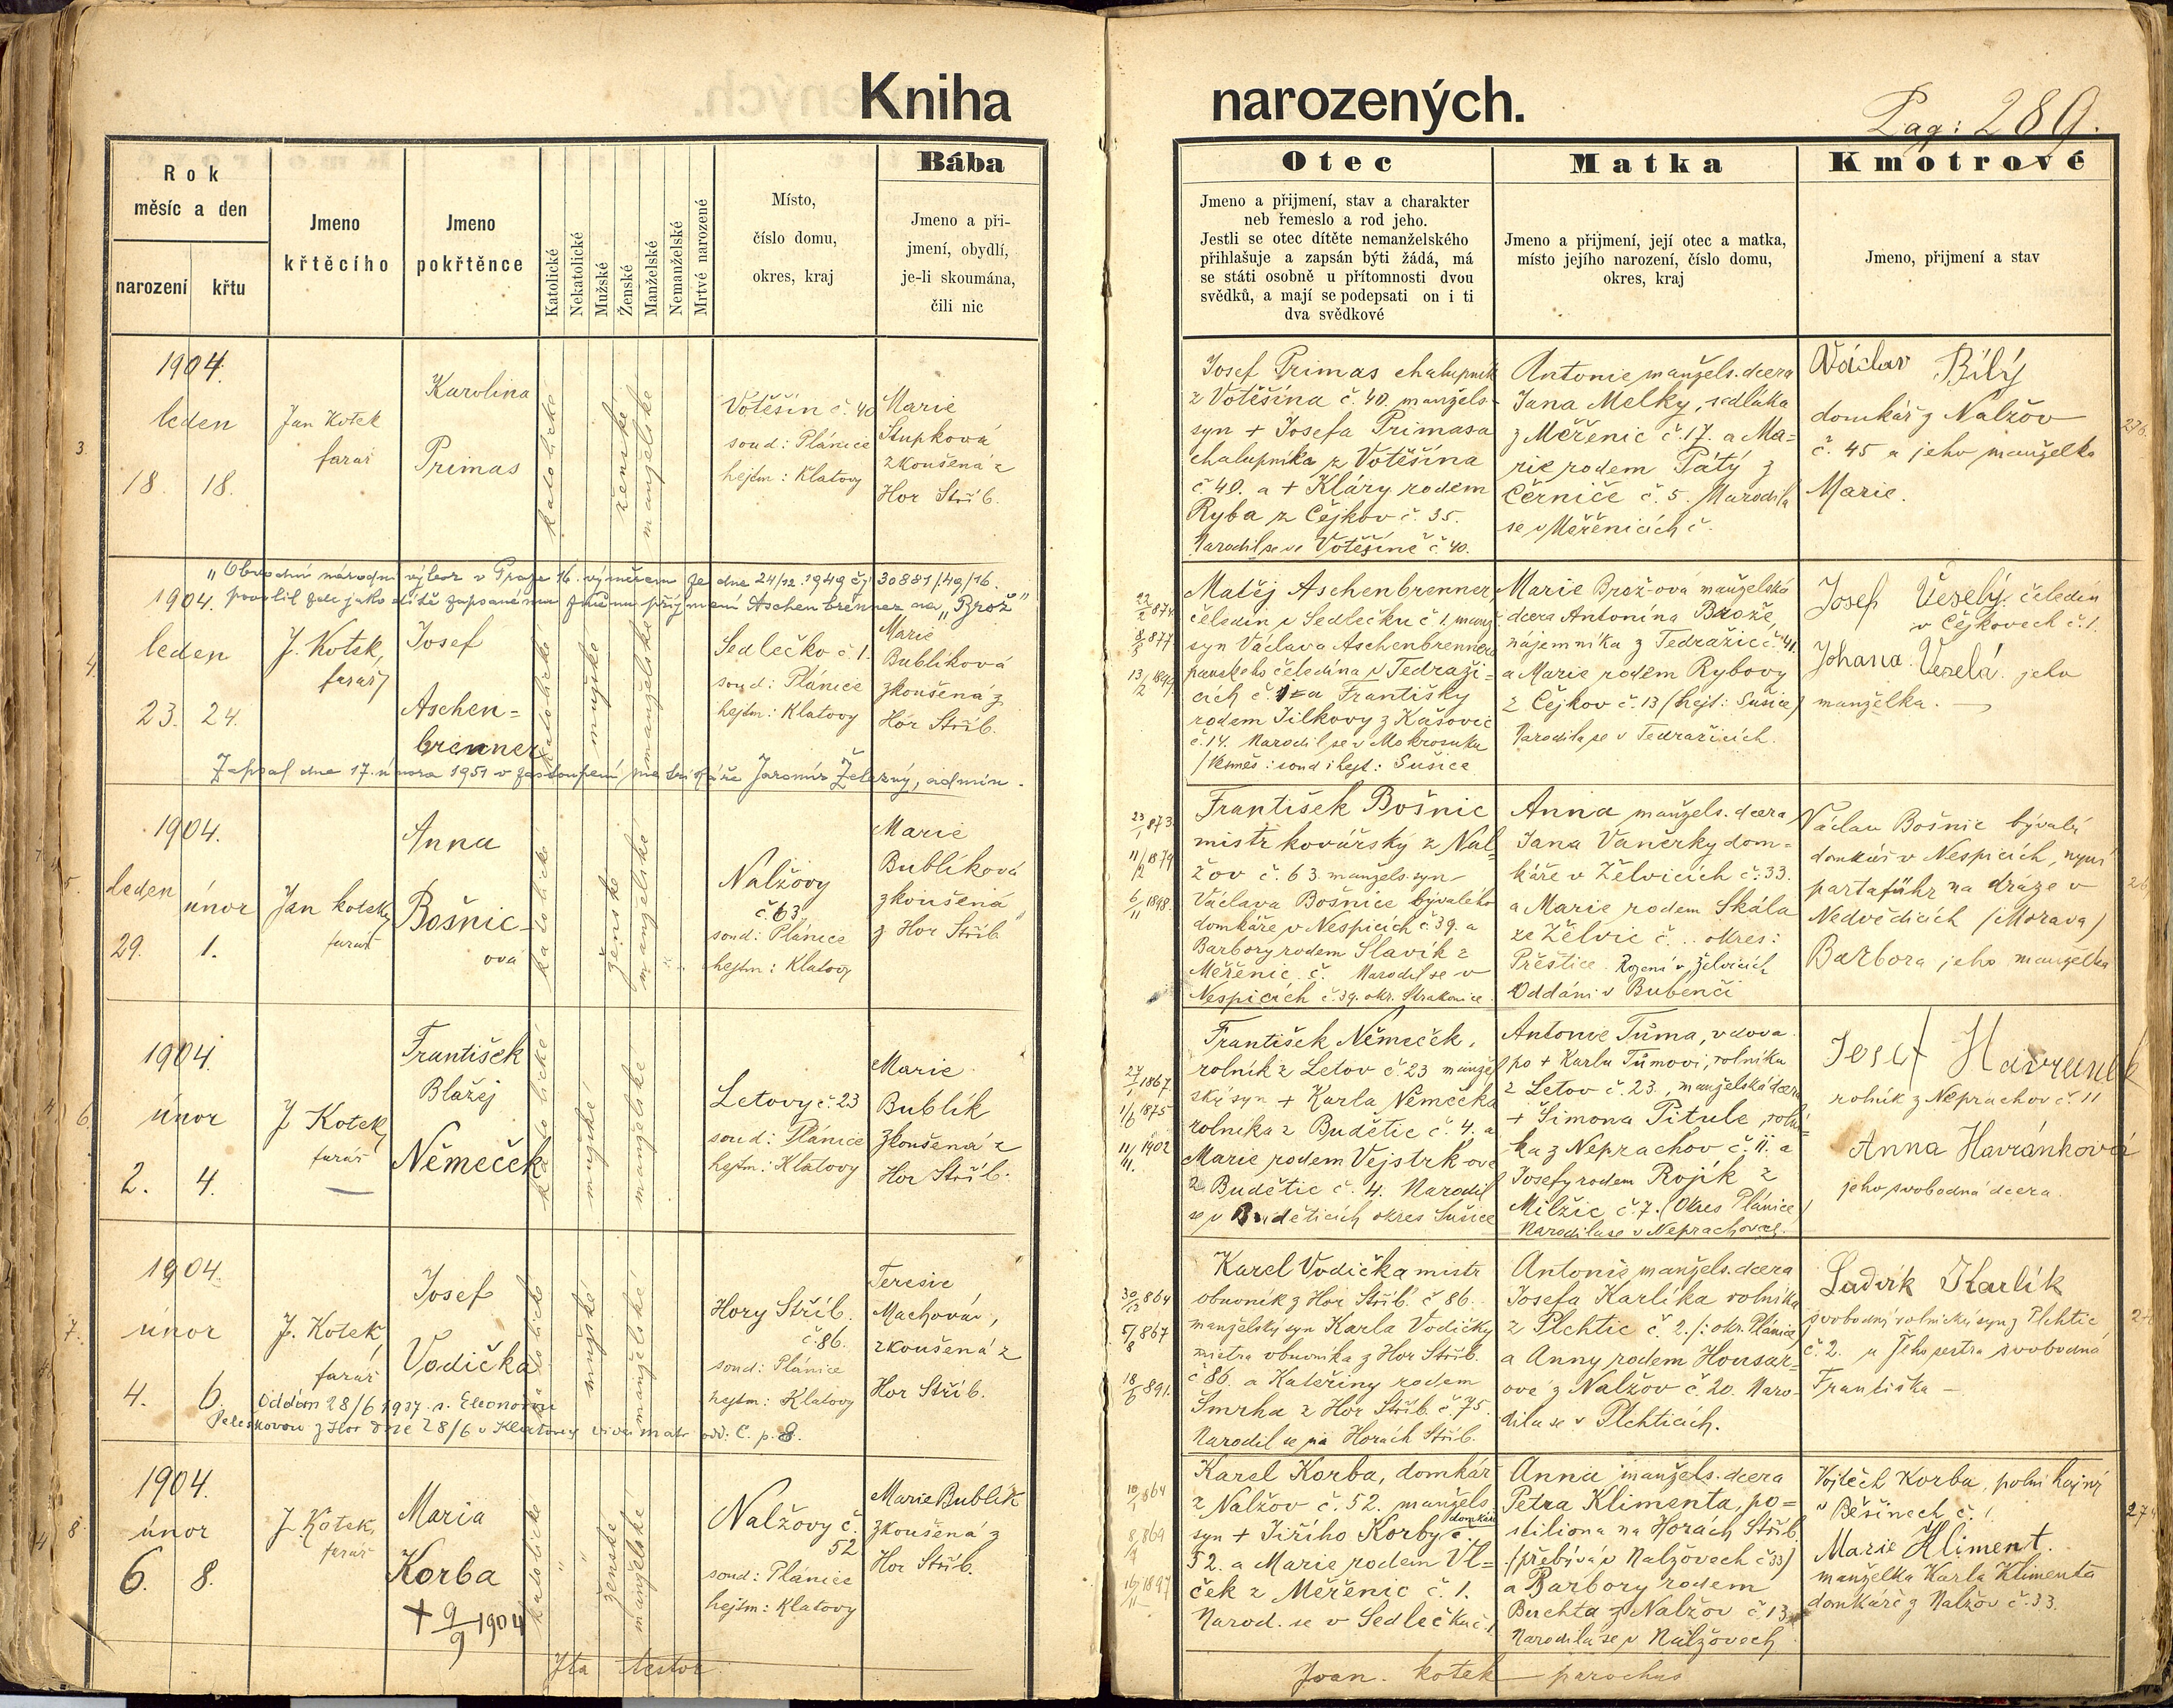 Kniha narozených.
Pag: 289.
Rok
měsíc a den
narození
křtu
Jmeno
křtěcího
Jmeno
pokřtěnce
Katolické
Nekatolické
Mužské
Ženské
Manželské
Nemanželské
Mrtvé narozené
Místo,
číslo domu,
okres, kraj
Bába
Jmeno a při-
jmení, obydlí,
je-li skoumána,
čili nic
Otec
Jmeno a přijmení, stav a charakter
neb řemeslo a rod jeho.
Jestli se otec dítěte nemanželského
přihlašuje a zapsán býti žádá, má
se státi osobně u přítomnosti dvou
svědků, a mají se podepsati on i ti
dva svědkové
Matka
Jmeno a přijmení, její otec a matka,
místo jejího narození, číslo domu,
okres, kraj
Kmotrové
Jmeno, přijmení a stav
3.
1904.
leden
18. 18.
Jan Kotek
farář
Karolina
Primas
katolické
ženské
manželské
Votěšín č. 40
soud: Plánice
hejtm: Klatovy
Marie
Stupková
zkoušená z
Hor Stříb.
Josef Primas chalupník
z Votěšína č. 40. manžels-
syn + Josefa Primasa
chalupníka z Votěšína
č. 40. a + Kláry rodem
Ryba z Čejkov č. 35.
Narodil se ve Votěšíně č. 40.
Antonie manžels. dcera
Jana Melky, sedláka
z Měřenic č. 17. a Ma=
rie rodem Pátý z
Černíče č. 5. Narodila
se v Měřenicích č.
Václav Bílý
domkář z Nalžov
č. 45 a jeho manželka
Marie.
"Obvodní národní výbor v Praze 16. výměrem ze dne 24/12.1949 čj 30881/49/16.
povolil zde jako dítě zapsanému změnu příjmení Aschenbrenner na „Brož"
4.
1904.
leden
23. 24.
J. Kotek,
farář
Josef
Aschen=
brenner
katolické
mužské
manželské
Sedlečko č. 1.
soud: Plánice
hejtm: Klatovy
Marie
Bublíková
zkoušená z
Hor Stříb.
Matěj Aschenbrenner,
čeledín v Sedlečku č. 1. manž
syn Václava Aschenbrennera
panského čeledína v Tedraži=
cích č. a Františky
rodem Jilkovy z Kašovic
č. 14. Narodil se v Mokrosuku
/Vesměs: soud i hejt: Sušice
Marie Brož-ová manželská
dcera Antonína Brože,
nájemníka z Tedražic č. 41.
a Marie rodem Rybovy
z Čejkov č. 13 (hejt: Sušice)
Narodila se v Tedražicích.
Josef Veselý čeledín
v Čejkovech č. 1.
Johana Veselá jeho
manželka.
Zapsal dne 17. února 1951 v zastoupení matrikáře Jaromír Železný, admin.
5.
1904.
leden únor
29. 1.
Jan Kotek,
farář
Anna
Bošnic-
ová
katolické
ženské
manželské
Nalžovy
č. 63
soud: Plánice
hejtm: Klatovy
Marie
Bublíková
zkoušená
z Hor Stříb.
23/1 873.
11/2 1879
6/11 1898.
František Bošnic
mistr kovářský z Nal=
žov č. 63. manžels. syn
Václava Bošnice bývalého
domkáře v Nespicích č. 39. a
Barbory rodem Slavík z
Měřenic č. Narodil se v
Nespicích č. 39. okr. Strakonice.
Anna manžels. dcera
Jana Vaněrky dom-
káře v Želvicích č. 33.
a Marie rodem Skála
ze Želvic č... okres:
Přeštice. Rozená v Želvicích
Oddáni v Bubenči
Václav Bošnic bývalý
domkář v Nespicích, nyní
partaführ na dráze v
Nedvědicích (Morava)
Barbora jeho manželka
6.
1904.
únor
2. 4.
J Kotek,
farář
František
Blažej
Němeček
katolické
mužské
manželské
Letovy č. 23
soud: Plánice
hejtm: Klatovy
Marie
Bublík
zkoušená z
Hor Stříb.
František Němeček,
rolník z Letov č. 23 manžel
ský syn + Karla Němečka
rolníka z Budětic č. 4. a
Marie rodem Vejstrkové
z Budětic č. 4. Narodil
se v Budětících okres Sušice
Antonie Tůma, vdova
po + Karlu Tůmovi, rolníku
z Letov č. 23, manželská dcera
+ Šimona Pitule, rolní=
ka z Neprachov č. 11. a
Josefy rodem Rojík z
Milžic č. 7. (Okres Plánice)
Narodila se v Neprachovech.
Josef Havránek
rolník z Neprachov č. 11
Anna Havránková
jeho svobodná dcera.
7.
1904.
únor
4. 6.
J. Kotek,
farář
Josef
Vodička
katolické
mužské
manželské
Hory Stříb.
č. 86.
soud: Plánice
hejtm: Klatovy
Teresie
Machová,
zkoušená z
Hor Stříb.
30/12 864
5/8 867
18/6 891.
Karel Vodička mistr
obuvník z Hor Stříb. č 86.
manželský syn Karla Vodičky
mistra obuvníka z Hor Stříb.
č 86. a Kateřiny rodem
Smrha z Hor Stříb. č. 75.
Narodil se na Horách Stříb.
Antonie manžels. dcera
Josefa Karlíka rolníka
z Plchtic č. 2. /: okr. Plánice/
a Anny rodem Housar-
ové z Nalžov č. 20. Naro-
dila se v Plchticích.
Ludvík Karlík
svobodný rolnický syn z Plchtic
č. 2. a jeho sestra svobodná
Františka –
Oddán 28/6 1937 s. Eleonorou
z Hor dne 28/6 v Klatovech
8.
1904.
únor
6. 8.
J Kotek,
farář
Maria
Korba
+ 9/9 1904
katolické
ženské
manželské
Nalžovy č.
52
soud: Plánice
hejtm: Klatovy
Marie Bublík
zkoušená z
Hor Stříb.
Karel Korba, domkář
z Nalžov č. 52. manžels.
syn + Jiřího Korby domkáře č.
52. a Marie rodem Vl=
ček z Měřenic č. 1.
Narod. se v Sedlečku č. 1
Anna manžels. dcera
Petra Klimenta, po=
stiliona na Horách Stříb.
(přebývá v Nalžovech č 33)
a Barbory rodem
Buchta z Nalžov č. 13
Narodila se v Nalžovech
Vojtěch Korba, polní hajný
v Běšinech č. 1.
Marie Kliment.
manželka Karla Klimenta
domkáře z Nalžov č. 33.
Ita testor
Joan. Kotek parochus